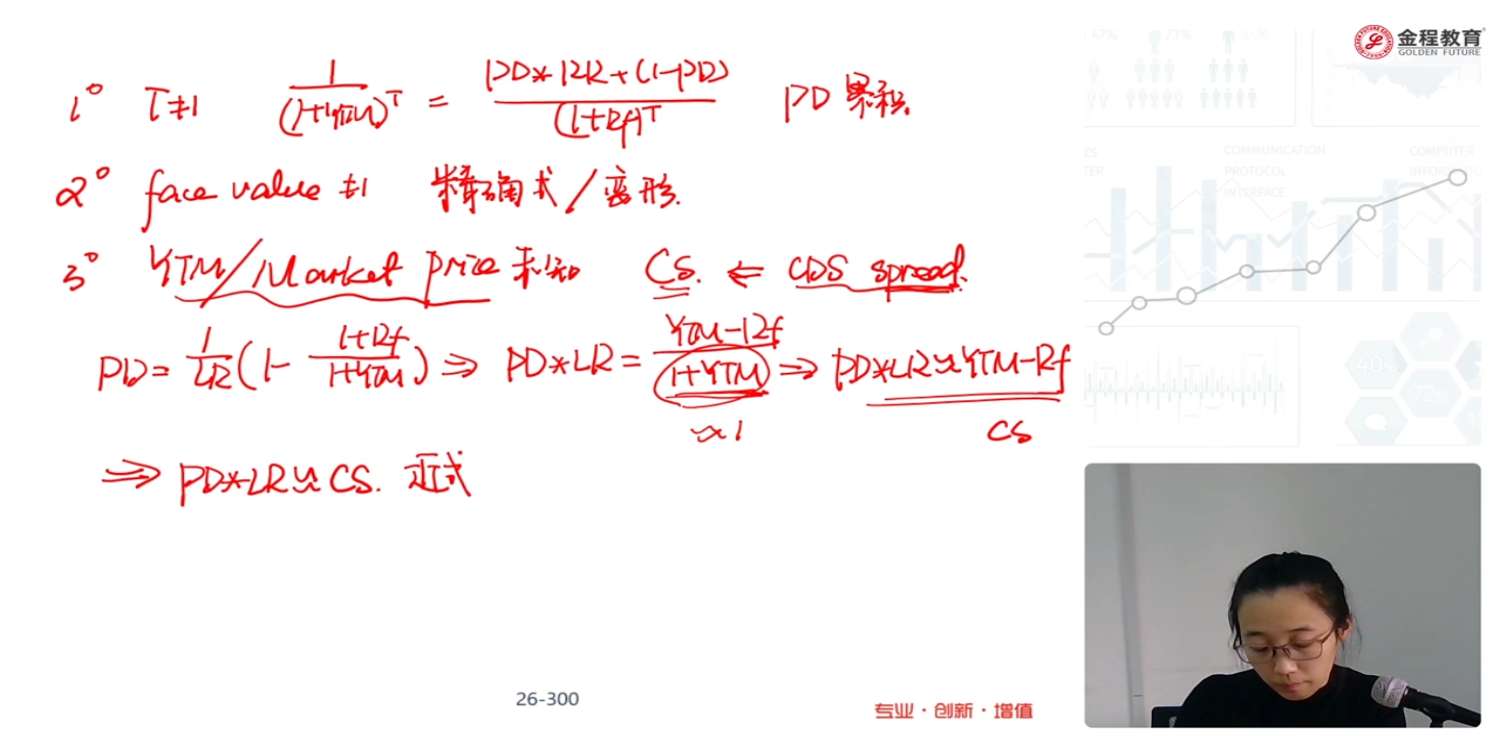 金程教育
GOLDEN FUTURE
1° T≠1 1/(1+YTM)^T = (PD*RR+(1-PD))/(1+Rf)^T PD 累积
2° face value ≠1 精确式/变形.
3° YTM/Market price 未知 CS. ⇐ CDS spread.
PD = 1/LR (1 - (1+Rf)/(1+YTM)) ⇒ PD*LR = (YTM-Rf)/(1+YTM) ⇒ PD*LR≈YTM-Rf
≈1 CS
⇒ PD*LR≈CS. 近似式
COMMUNICATION
PROTOCOL
INTERFACE
COMPUTER
26-300
专业·创新·增值